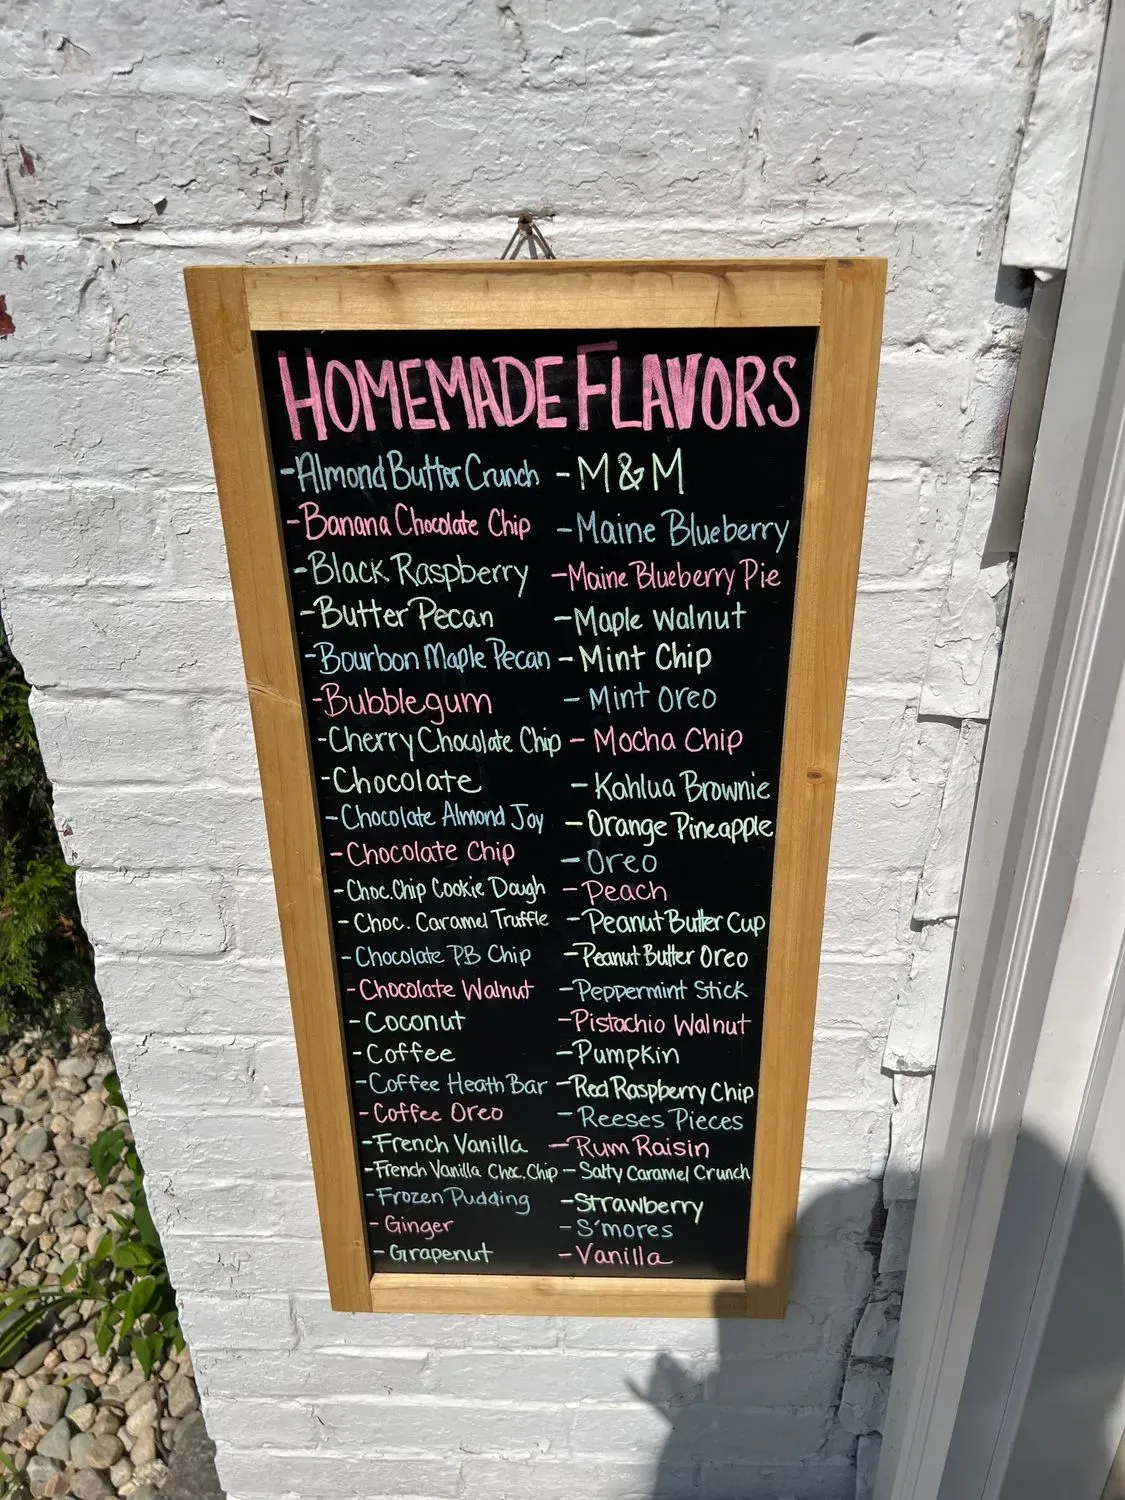 HOMEMADE FLAVORS
-Almond Butter Crunch
-Banana Chocolate Chip
-Black Raspberry
-Butter Pecan
-Bourbon Maple Pecan
-Bubblegum
-Cherry Chocolate Chip
-Chocolate
-Chocolate Almond Joy
-Chocolate Chip
-Choc. Chip Cookie Dough
-Choc. Caramel Truffle
-Chocolate PB Chip
-Chocolate Walnut
-Coconut
-Coffee
-Coffee Heath Bar
-Coffee Oreo
-French Vanilla
-French Vanilla Choc. Chip
-Frozen Pudding
-Ginger
-Grapenut
-M&M
-Maine Blueberry
-Maine Blueberry Pie
-Maple Walnut
-Mint Chip
-Mint Oreo
-Mocha Chip
-Kahlua Brownie
-Orange Pineapple
-Oreo
-Peach
-Peanut Butter Cup
-Peanut Butter Oreo
-Peppermint Stick
-Pistachio Walnut
-Pumpkin
-Red Raspberry Chip
-Reeses Pieces
-Rum Raisin
-Salty Caramel Crunch
-Strawberry
-S'mores
-Vanilla